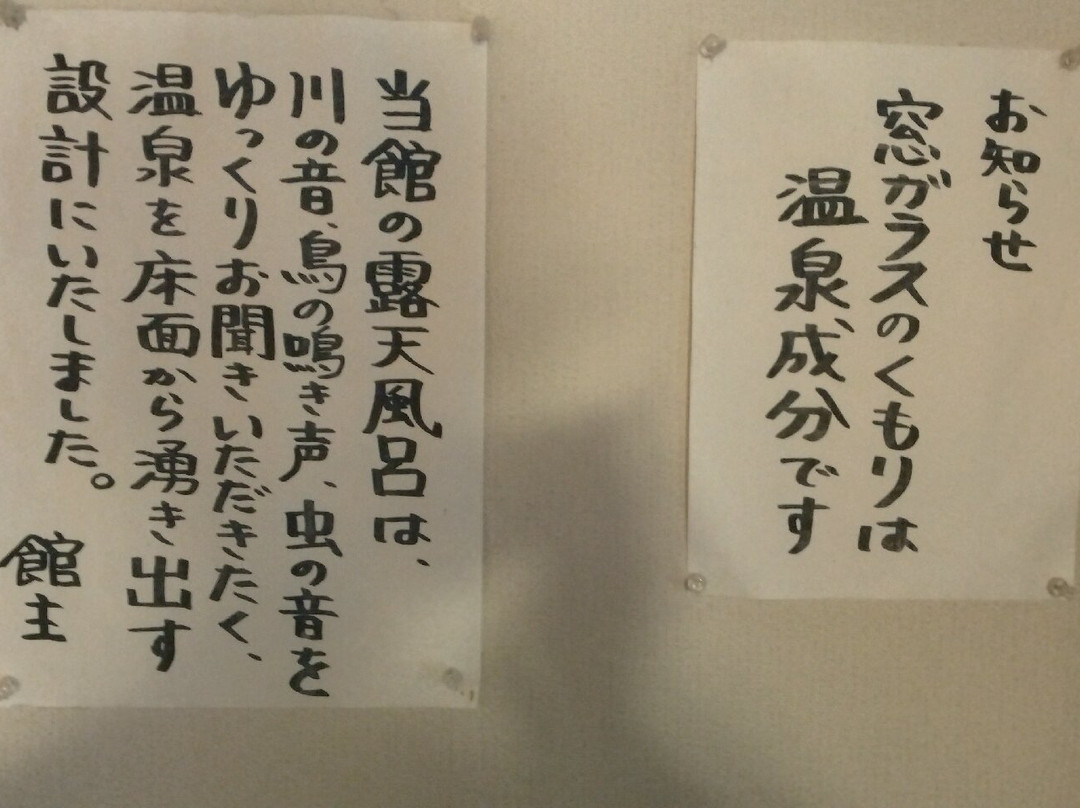 お知らせ
窓ガラスのくもりは
温泉成分です
当館の露天風呂は、
川の音、鳥の鳴き声、虫の音を
ゆっくりお聞きいただきたく、
温泉を床面から湧き出す
設計にいたしました。
館主